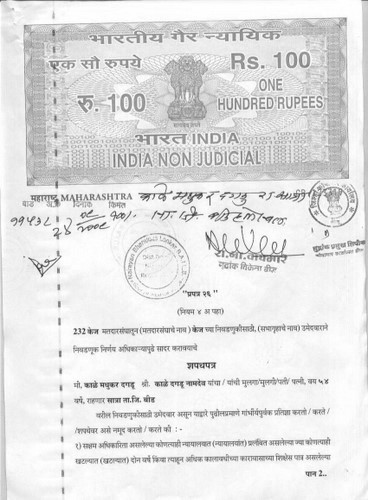 भारतीय गैर न्यायिक
एक सौ रुपये
Rs. 100
रु. 100
ONE
HUNDRED RUPEES
भारत INDIA
INDIA NON JUDICIAL
महाराष्ट्र MAHARASHTRA
दिनांक किंमत
मुद्रांक विक्रेता बीड
"प्रपत्र २६"
(नियम ४ अ पहा)
232 केज मतदारसंघातून (मतदारसंघाचे नाव) केज च्या निवडणुकीसाठी, (सभागृहाचे नाव) उमेदवाराने
निवडणूक निर्णय अधिकाऱ्यापुढे सादर करावयाचे
शपथपत्र
मी. काळे मधुकर दगडू श्री. काळे दगडू नामदेव यांचा / यांची मुलगा/मुलगी/पती/ पत्नी, वय ५४
वर्षे, राहणार खात्रा ता.जि. बीड
वरील निवडणुकीसाठी उमेदवार असून याद्वारे पुढीलप्रमाणे गांभीर्यपूर्वक प्रतिज्ञा करतो / करते /
/शपथेवर असे नमूद करतो / करते की : -
१) सक्षम अधिकारिता असलेल्या कोणत्याही न्यायालयात (न्यायालयांत) प्रलंबित असलेल्या ज्या कोणत्याही
खटल्यात (खटल्यात) दोन वर्षे किंवा त्याहून अधिक कालावधीच्या कारावासाच्या शिक्षेस पात्र असलेल्या
पान 2..